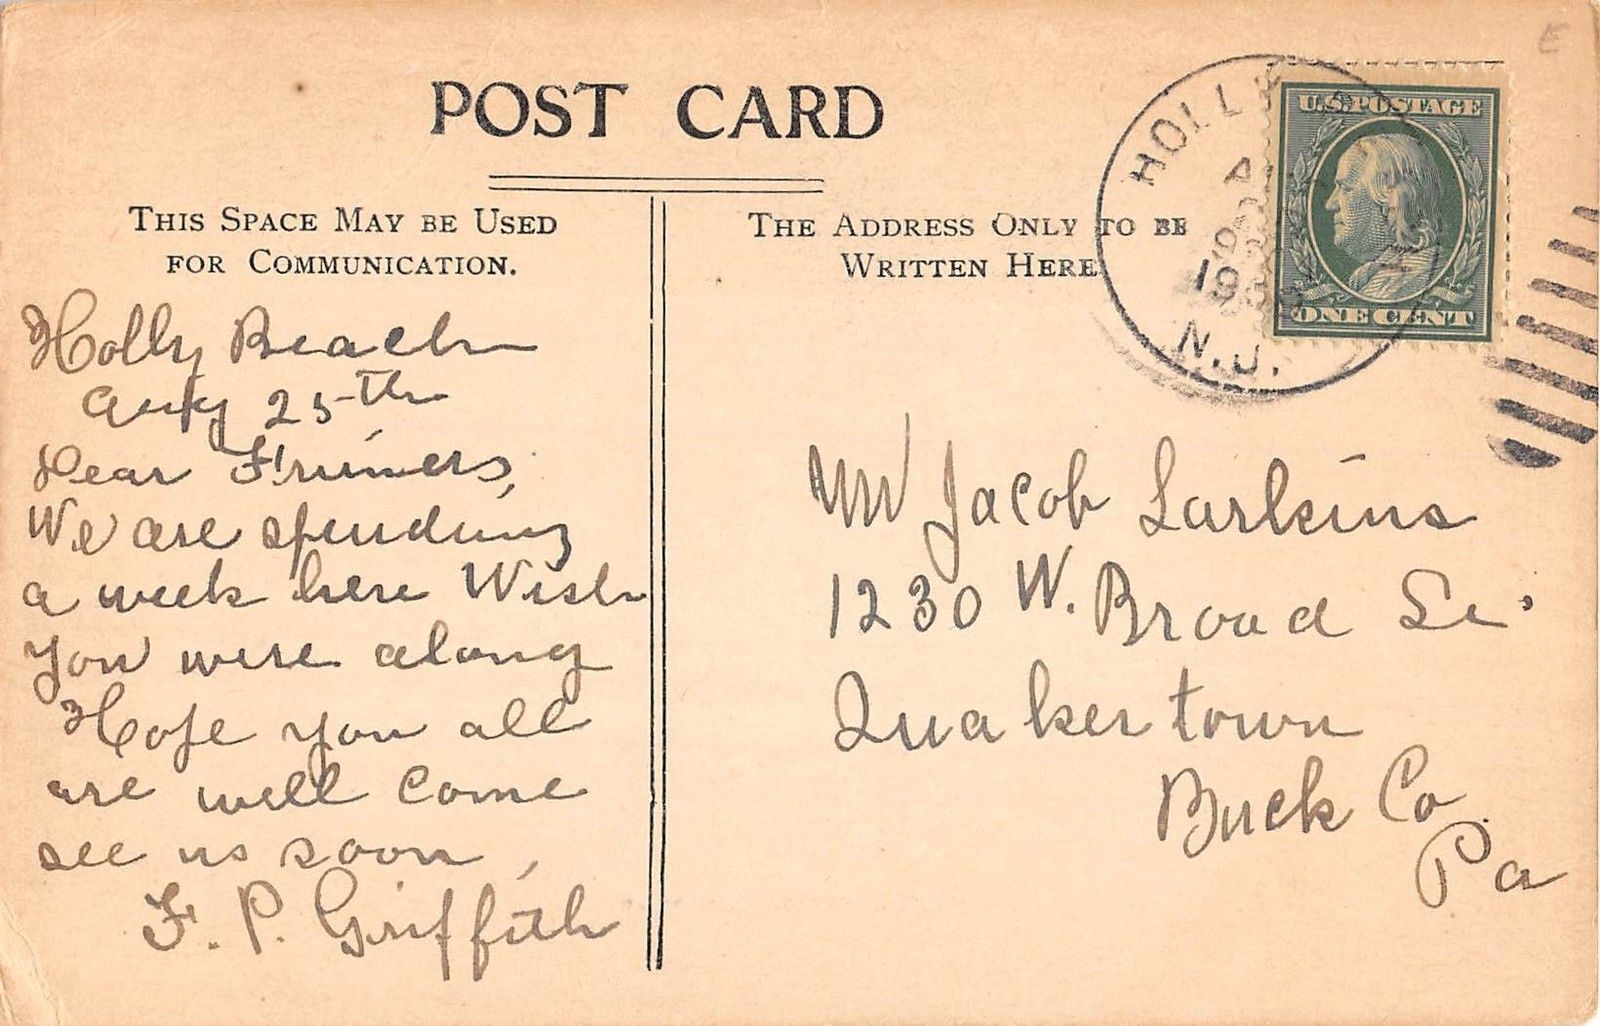 POST CARD
THIS SPACE MAY BE USED
FOR COMMUNICATION.
THE ADDRESS ONLY TO BE
WRITTEN HERE
HOLLY
N.J.
U.S. POSTAGE
ONE CENT
Holly Beach
Aug 25th
Dear Friends,
We are spending
a week here Wish
you were along
Hope you all
are well Come
see us soon,
F. P. Griffith
Mr Jacob Larkins
1230 W. Broad St.
Quakertown
Buck Co.
Pa
E